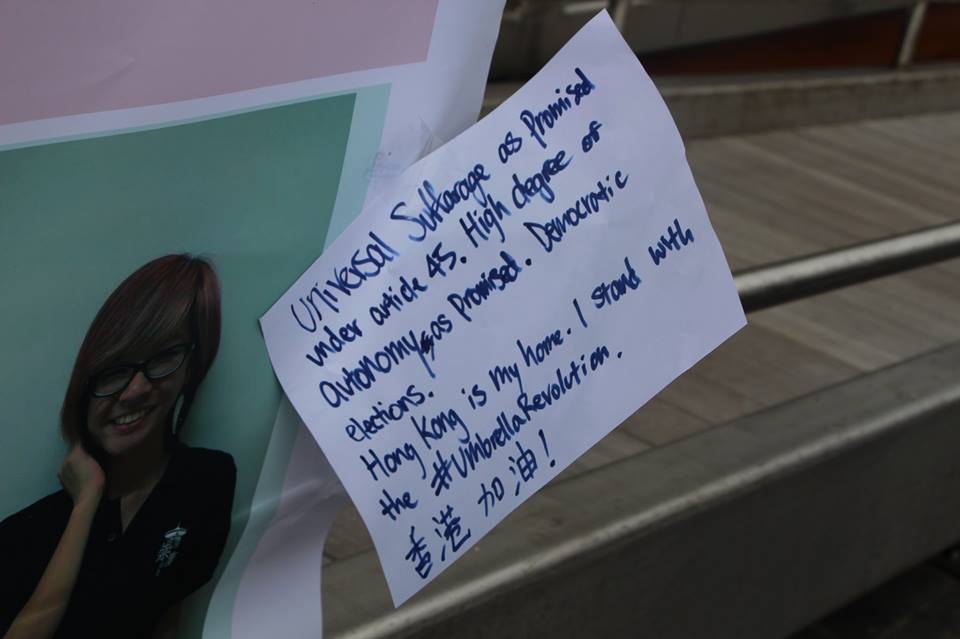 Universal Suffarage as promised
under article 45. High degree of
autonomy, as promised. Democratic
elections.
Hong Kong is my home. I stand with
the #UmbrellaRevolution.
香港 加油!